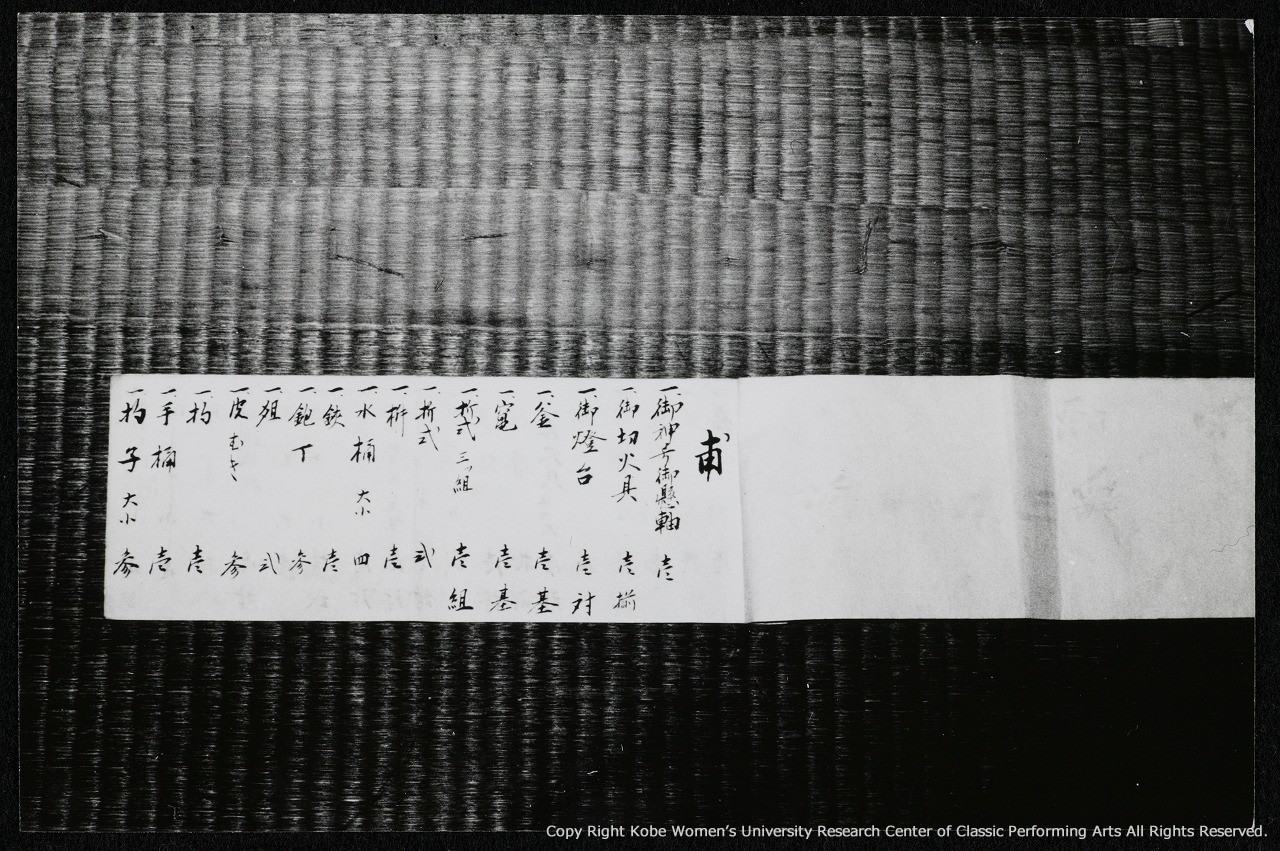 甫
一、御神号御懸軸 壱
一、御切火具 壱揃
一、御燈台 壱対
一、釜 壱基
一、竃 壱基
一、折式三ッ組 壱組
一、折式 弐
一、枡 壱
一、水桶 大小 四
一、鋏 壱
一、鉋丁 参
一、俎 弐
一、皮むき 参
一、杓 壱
一、手桶 壱
一、杓子 大小 参
Copy Right Kobe Women's University Research Center of Classic Performing Arts All Rights Reserved.